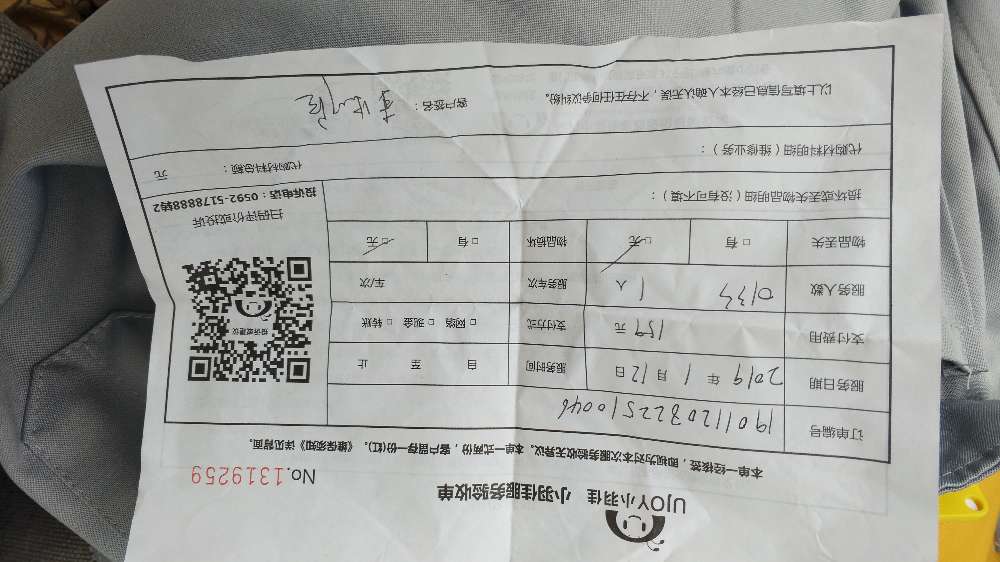 UJOY小羽佳 小羽佳服务验收单
No.1319259
本单一经核签，即视为对本次服务验收无异议。本单一式两份，客户留存一份(红)。《维保须知》详见背面。
订单编号 1901120322510046
服务日期 2019 年 1 月 12 日 服务时间 自 至 止
支付费用 159 元 支付方式 □ 网络 □ 现金 □ 转账
服务人数 0133 1 人 服务车次 车/次
物品丢失 □ 有 □ 无 物品损坏 □ 有 □ 无
投诉或建议
扫码评价或投诉
投诉电话：0592-5178888转2
损坏或丢失物品明细（没有可不填）：
代购材料明细（维修业务）：
代购材料总额： 元
以上填写信息已经本人确认无误，不存在任何争议纠纷。
客户签名：